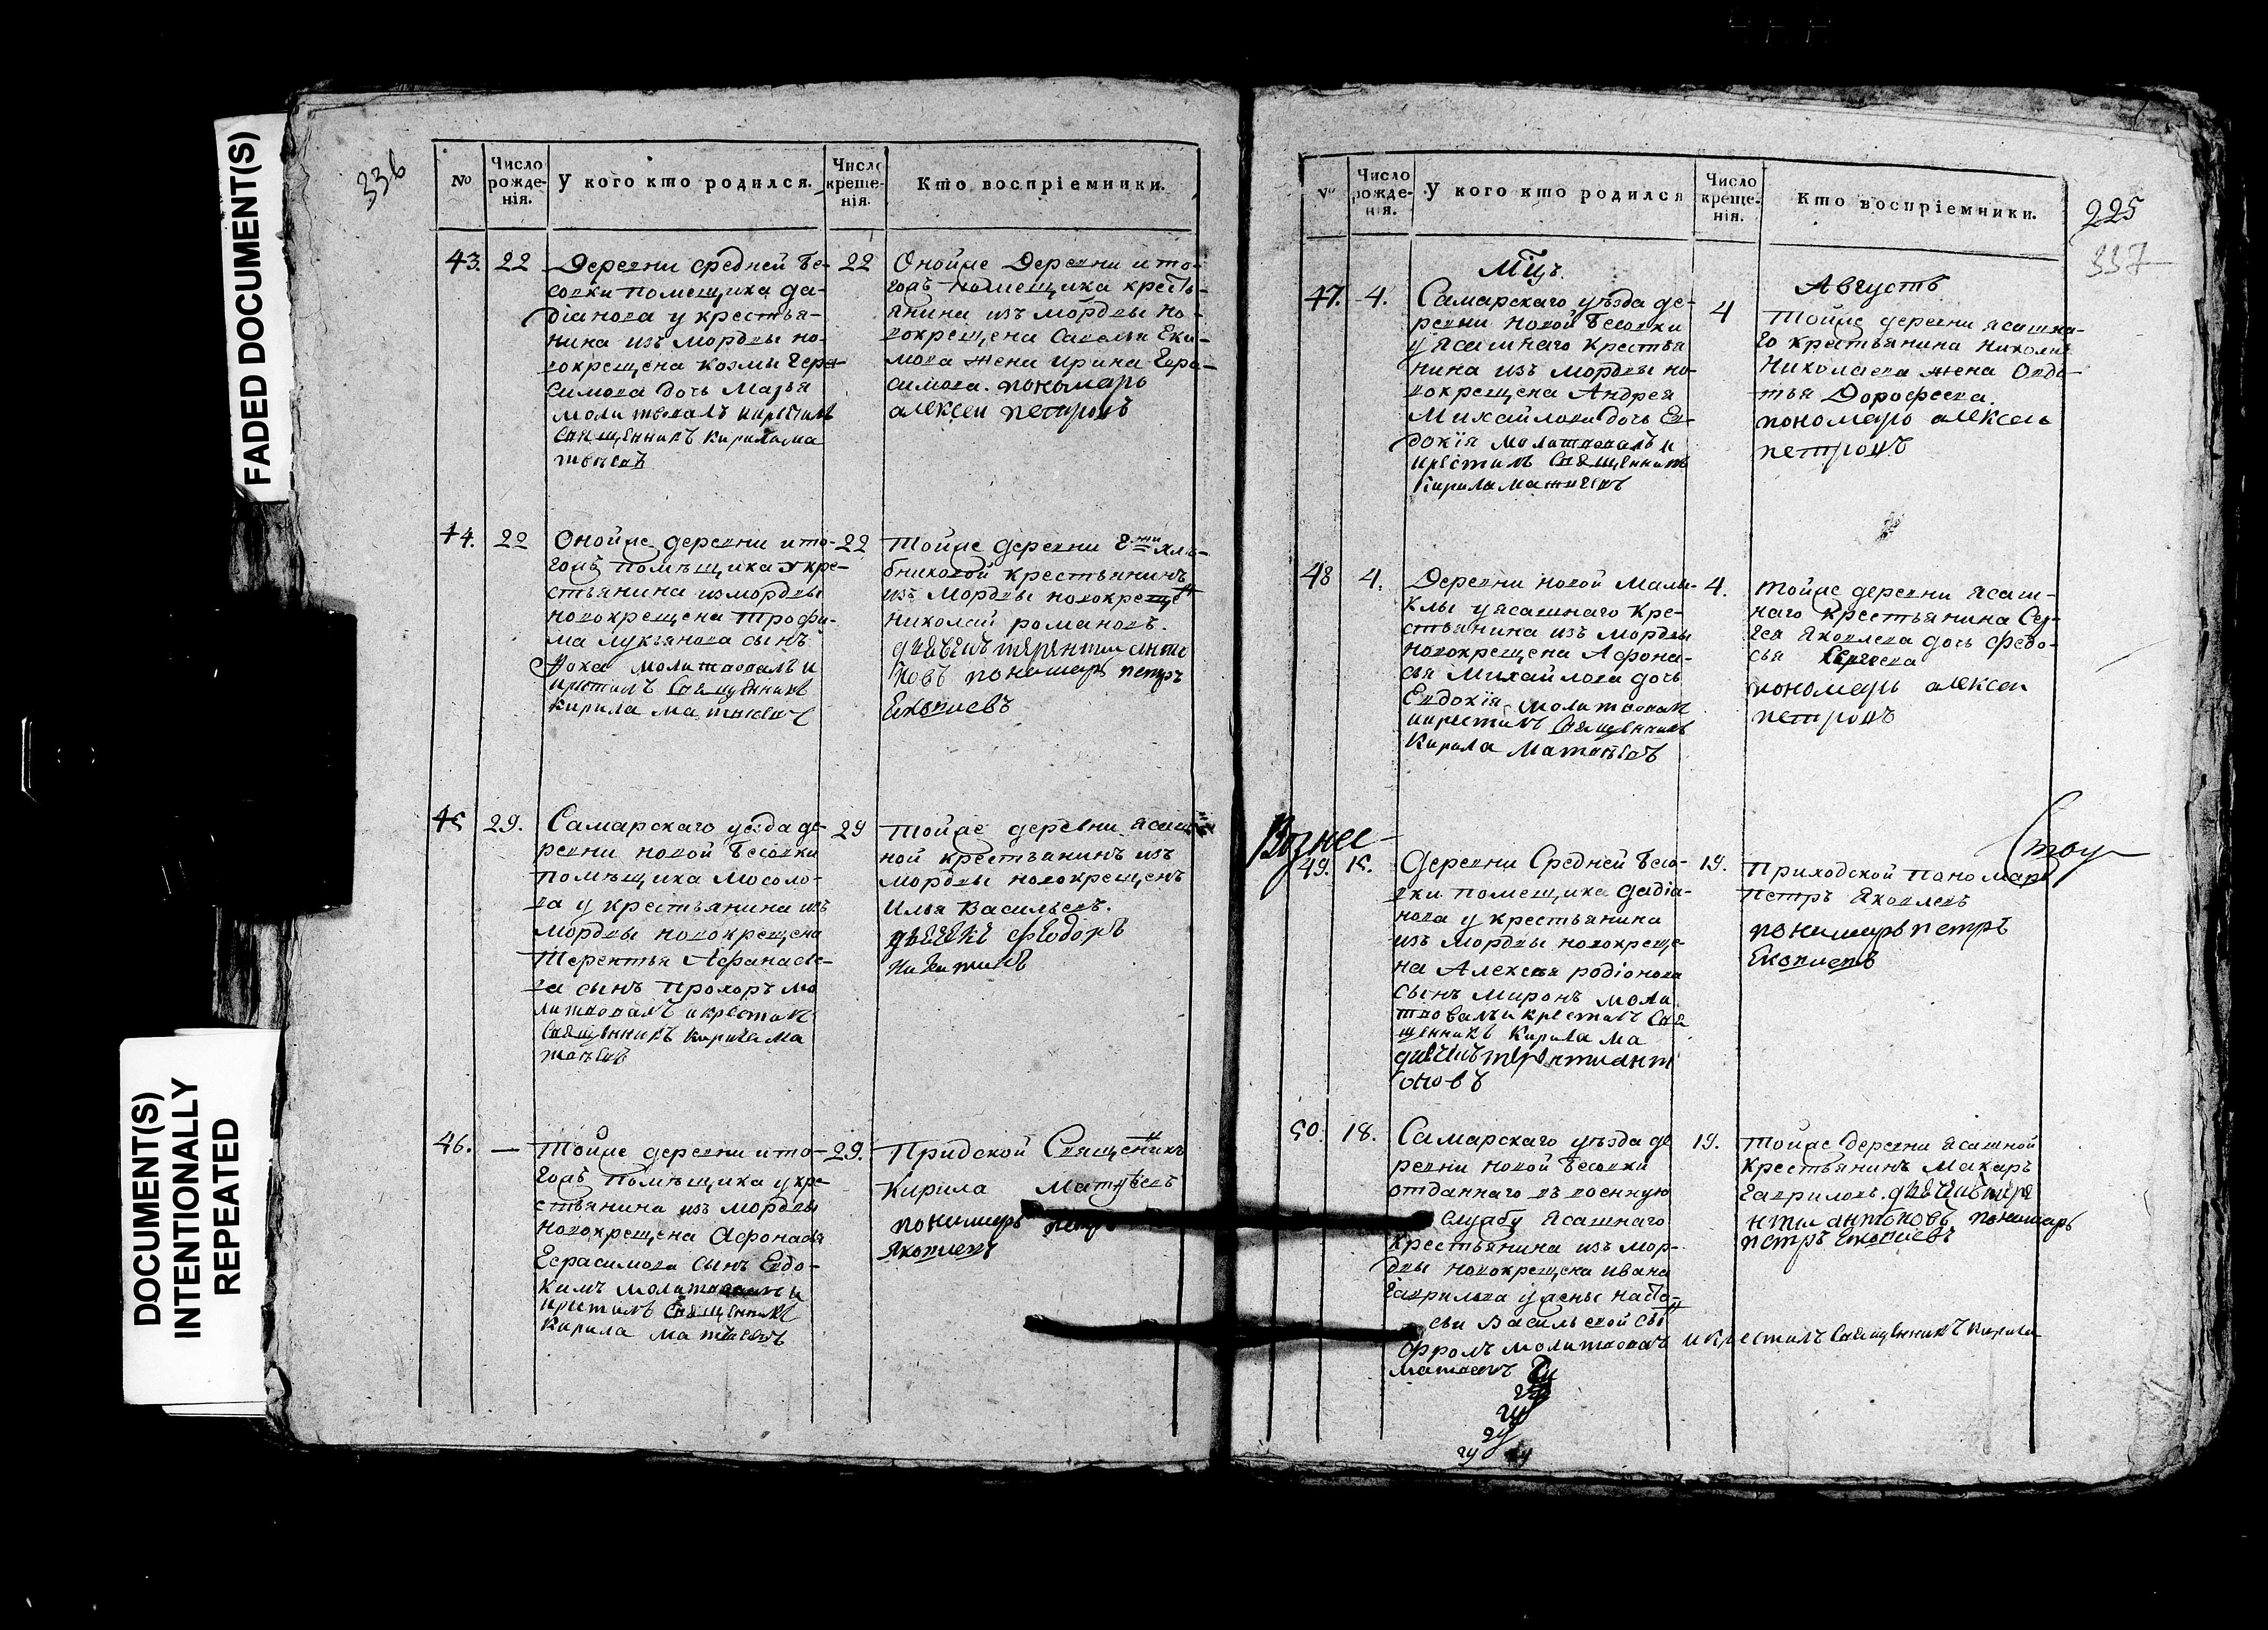 FADED DOCUMENT(S)
DOCUMENT(S)
INTENTIONALLY
REPEATED
336
№
Число рожде-нія.
У кого кто родился.
Число креще-нія.
Кто воспріемники.
43.
22
Деревни средней Бе-
совки помещика да-
діанова у крестья-
нина изъ мордвы но-
вокрещена козмы Гера-
симова дочь Марья
молитвовалъ икрестилъ
священникъ кирила ма
твѣевъ
22
Онойже Деревни ито-
гожъ помещика кресть-
янина изъ мордвы но-
вокрещена Савелья Еки-
мова жена ирина Гера-
симова. пономарь
алексеи петровъ
44.
22
Онойже деревни ито-
гожъ помѣщика у кре-
стьянина измордвы
новокрещена Трофи-
ма лукьянова сынъ
молитвовалъ и
крстилъ священникъ
кирила матвѣевъ
22
Тойже деревни
крестьянинъ
изъ мордвы новокрещен
николай романовъ.
дьячекъ терентии анто
новъ пономарь петръ
Яковлевъ
45
29.
Самарскаго уезда де-
ревни новой Бесовки
помѣщика Мосоло-
ва у крестьянина изъ
мордвы новокрещена
Терентья Афанасье-
ва сынъ Прохоръ мо
литвовалъ икрестилъ
священникъ кирила ма
твѣевъ
29
Тойже деревни ясаш-
ной крестьянинъ изъ
мордвы новокрещенъ
Илья Васильевъ.
дьячекъ Феодоръ
никитинъ
46.
—
Тойже деревни ито-
гожъ помѣщика укре
стьянина изъ мордвы
новокрещена Афонасья
Герасимова сынъ Евдо-
кимъ молитвовалъ и
крстилъ священникъ
Кирила матвѣевъ
29.
Придской Священникъ
Кирила Матвѣевъ
пономарь петръ
Яковлевъ
225
337
№
Число рожде-нія.
У кого кто родился
Число креще-нія.
Кто воспріемники.
Мцъ.
Августъ
47.
4.
Самарскаго уѣзда де-
ревни новой Бесовки
у ясашнаго крестья
нина изъ мордвы но-
вокрещена Андрея
Михайлова дочь Ев-
докія молитвовалъ и
крестилъ священникъ
Кирила Матвѣевъ
4
Тойже деревни ясашна-
го крестьянина Николая
Николаева жена Овдо-
тья Дорофеева.
пономарь алексеи
петровъ
48
4.
Деревни новой Малы-
клы у ясашнаго кре-
стьянина изъ Мордвы
новокрещена Афона-
сья Михайлова дочь
Евдокія молитвовалъ
икрестилъ священникъ
Кирила Матвѣевъ
4.
Тойже деревни ясаш-
наго крестьянина Сер-
гея Яковлева дочь Федо-
сья Сергеева
пономарь алексеи
петровъ
Вознес-
49.
15.
Деревни Средней Бесо-
вки помещика дадіа-
нова у крестьянина
изъ мордвы новокреще-
на Алексея родіонова
сынъ Миронъ моли
твовалъ икрестилъ свя
щенникъ Кирила ма
дьячекъ терентии ант
оновъ
19.
Приходской Пономарь
Петръ Яковлевъ
пономарь петръ
Яковлевъ
50.
18.
Самарскаго уѣзда де
ревни новой Бесовки
отданнаго въ военную
службу ясашнаго
крестьянина изъ мор-
двы новокрещена ивана
Гаврилова у жены насто-
сьи Васильевой сын
фролъ молитвовалъ икрестилъ священникъ Кирила
матвеевъ
19.
Тойже деревни ясашной
крестьянинъ Макаръ
Гавриловъ. дьячекъ тере
нтии антоновъ. пономарь
петръ Яковлевъ